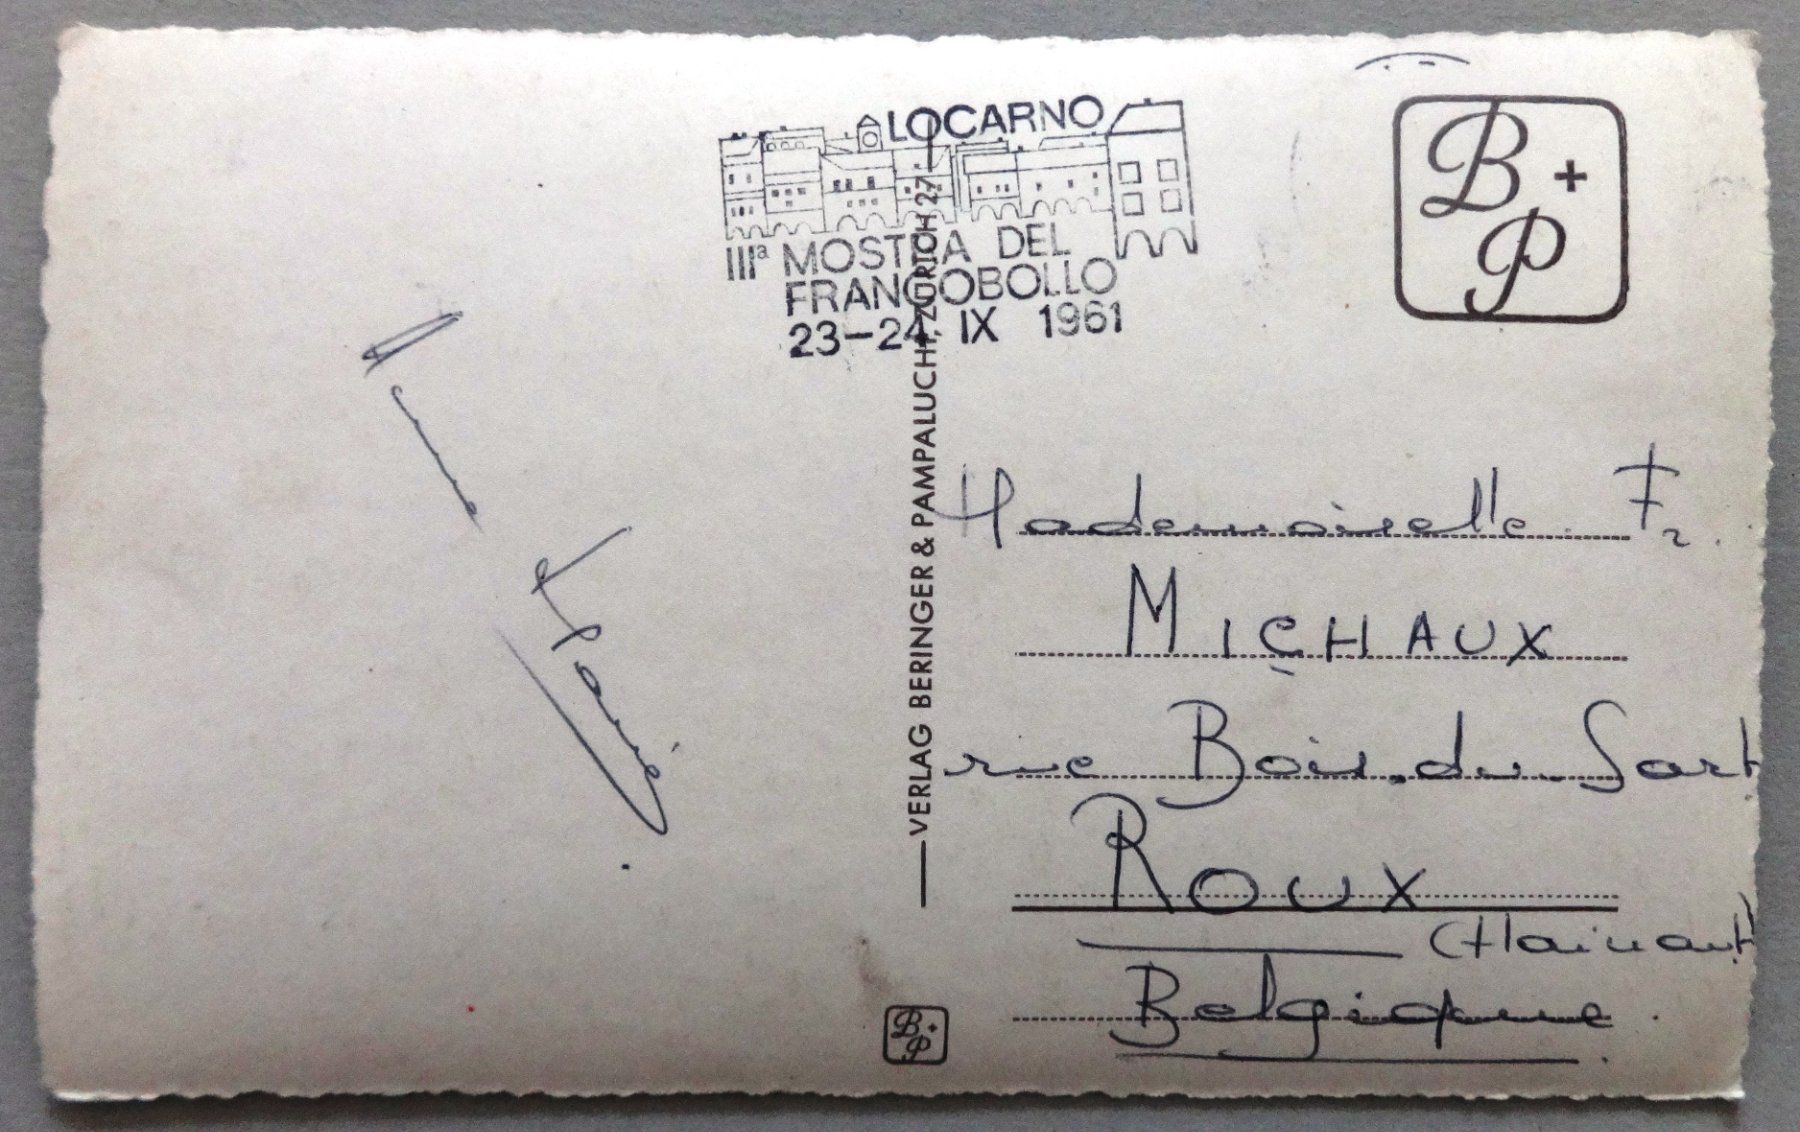 LOCARNO
IIIª MOSTRA DEL
FRANCOBOLLO
23–24 IX 1961
B + P
VERLAG BERINGER & PAMPALUCHI, ZÜRICH 27
Mademoiselle F
MICHAUX
rue Bois-du-Sart
ROUX
(Hainaut)
Belgique.
B + P